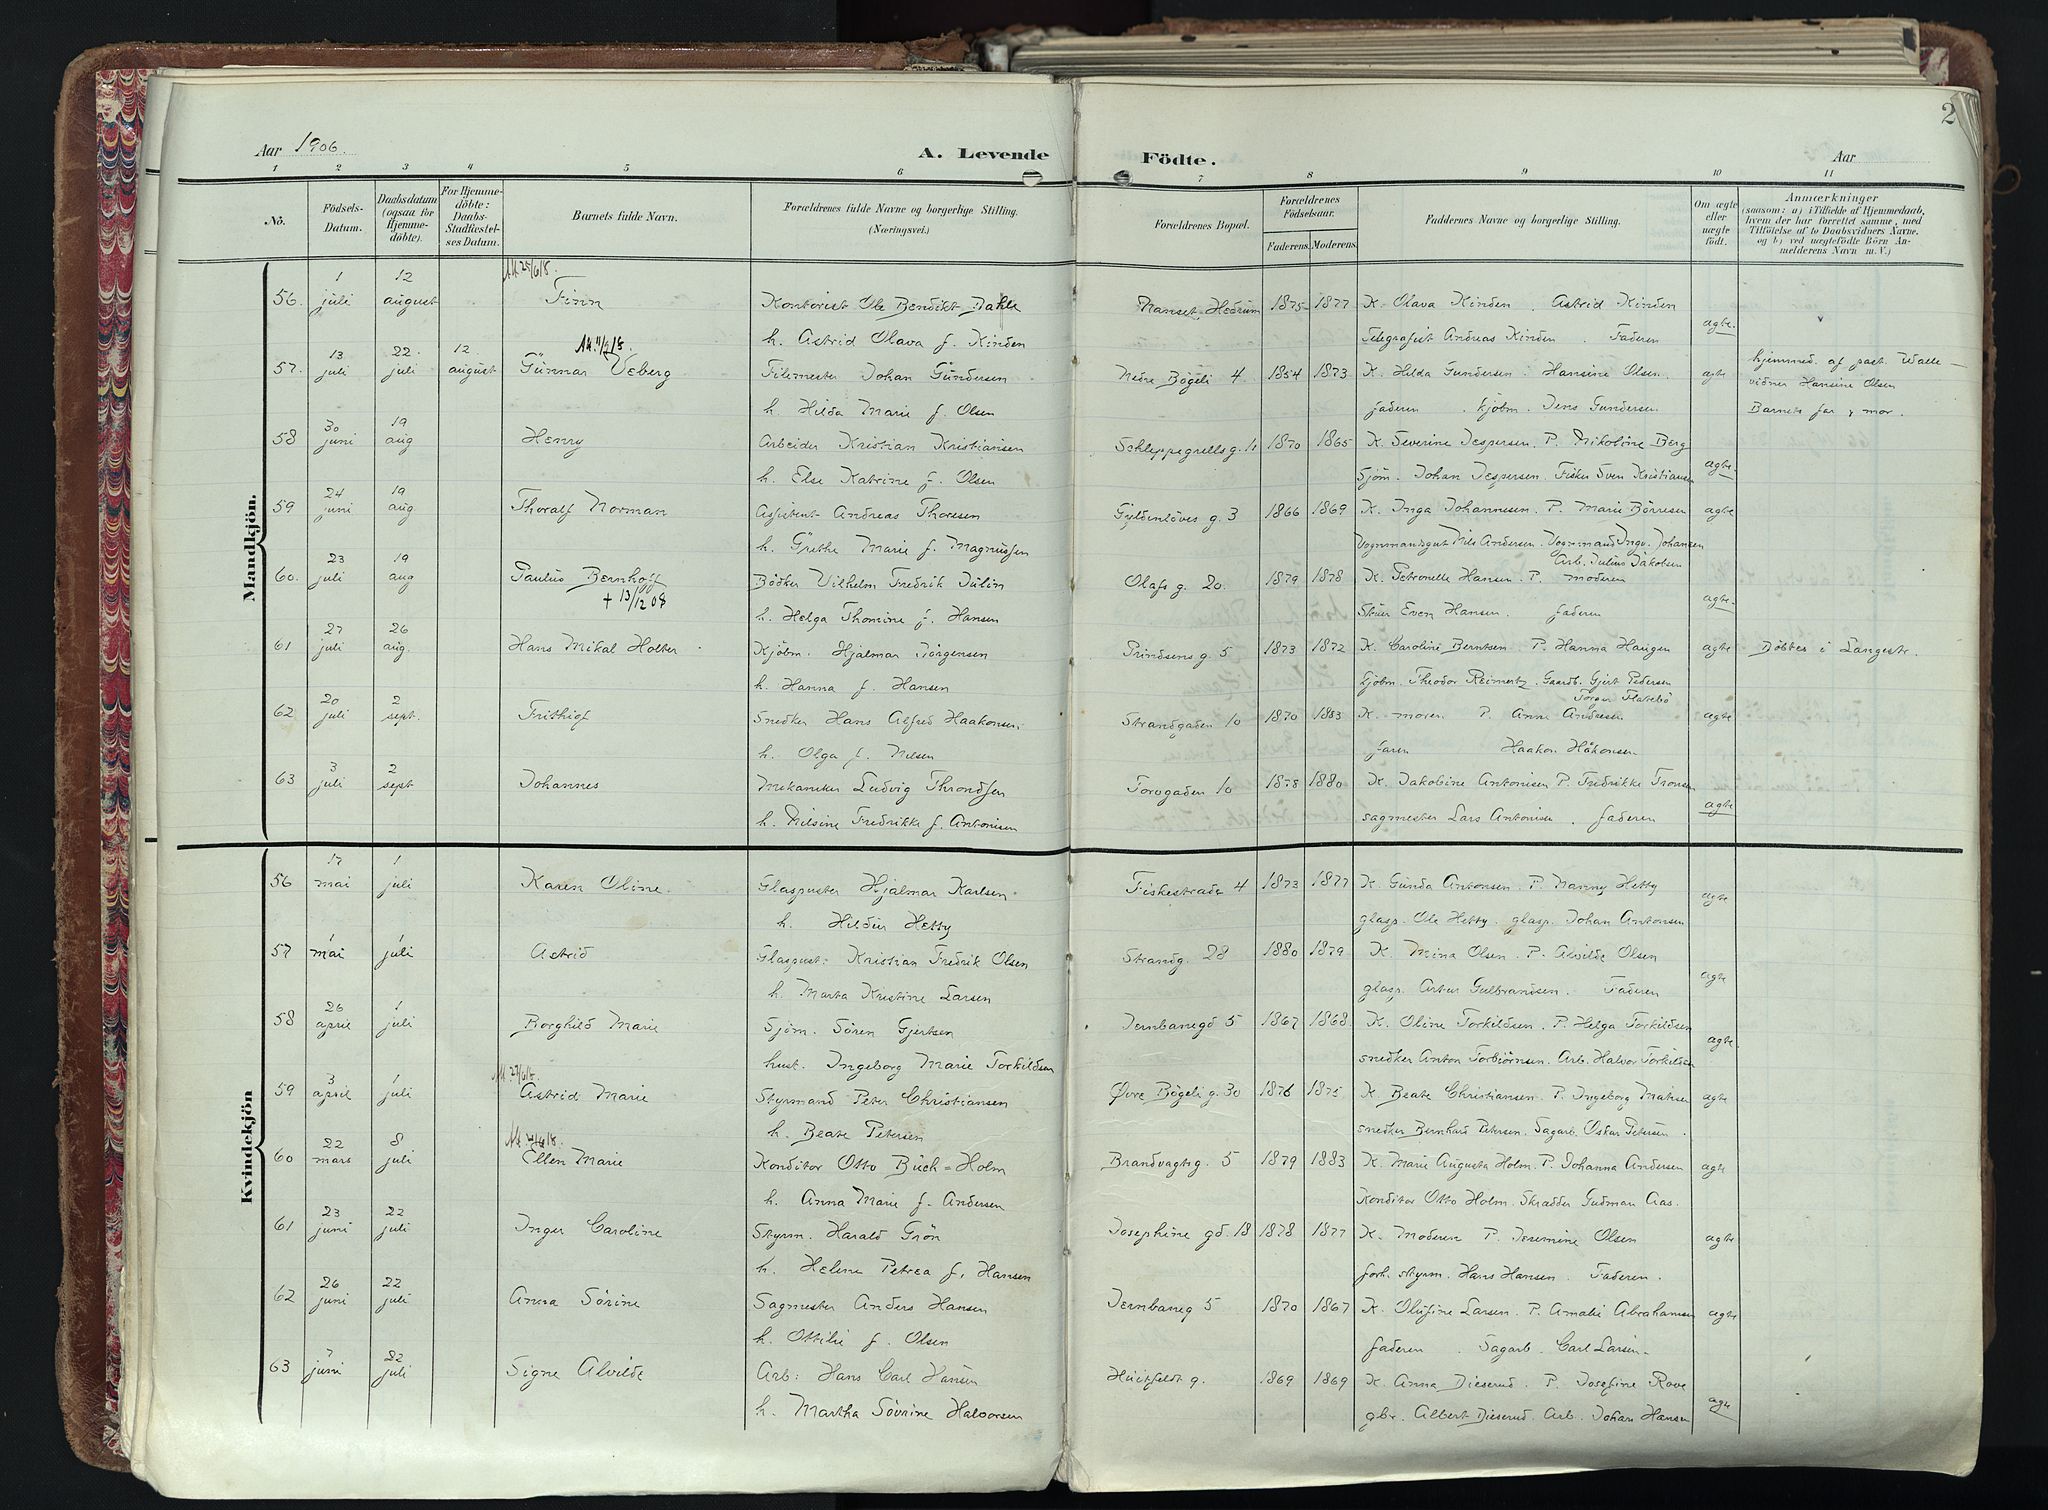 2
Aar 1906. A. Levende Födte. Aar
1 2 3 4 5 6 7 8 9 10 11
No. Födsels-Datum. Daabsdatum (ogsaa for Hjemme-döbte). For Hjemme-döbte: Daabs-Stadfæstel-ses Datum. Barnets fulde Navn. Forældrenes fulde Navne og borgerlige Stilling. (Næringsvei.) Forældrenes Bopæl. Forældrenes Födselsaar. Faderens. Moderens. Faddernes Navne og borgerlige Stilling. Om ægte eller uægte födt. Anmærkninger (saasom: a) i Tilfælde af Hjemmedaab, hvem der har forrettet samme, med Tilföielse af to Daabsvidners Navne. og b) ved uægtefödte Börn An-melderens Navn m. V.)
Mandkjön.
56. 1 juli 12 august Finn Kontorist Ole Bendikt Dahle Nanset, Hedrum 1875 1877 K. Olava Kinden. Astrid Kinden agte.
h. Astrid Olava f. Kinden Telegrafist Andreas Kinden. Faderen
57. 13 juli 22. juli 12. august Gunnar Veberg Filemester Johan Gundersen Nedre Bögeli 4 1854 1873 K. Hilda Gundersen. Hansine Olsen. agte hjemmed. af past. Walle-
vidner Hansine Olsen
h. Hilda Marie f. Olsen faderen. kjöbm. Jens Gundersen Barnets far & mor.
58 30 juni 19 aug Henry Arbeider Kristian Kristiansen Schleppegrellsg. 11 1870 1865 K. Severine Jespersen. P. Nikoline Berg agte
h. Else Katrine f. Olsen Sjöm. Johan Jespersen. Fisker Sven Kristiansen
59 24 juni 19 aug Thoralf Norman Assistent Andreas Thoresen Gyldenlöves g. 3 1866 1869 K. Inga Johannesen. P. Marie Börresen agte
h. Grethe Marie f. Magnussen Vognmandsgut Nils Andersen. Vognmand Ingv. Johansen
Arb. Julius Jakobsen
60. 23 juli 19 aug Paulus Bernhoff Bödker Vilhelm Fredrik Julin Olafs g. 20. 1879 1878 K. Petronelle Hansen. P. moderen agte
+ 13/12 08
h. Helga Thomine f. Hansen Skuer Even Hansen. faderen
61 27 juli 26 aug. Hans Mikal Holter Kjöbm. Hjalmar Jörgensen Prindsens g. 5 1873 1872 K. Caroline Berntsen. P. Hanna Haugen agte Döbtes i Langestr.
h. Hanna f. Hansen Kjöbm. Theodor Reimertz. Gaardb. Gjert Pedersen
62 20 juli 2 sept. Frithiof Snedker Hans Alfred Haakonsen. Strandgaden 10 1870 1883 K. moren P. Anne Andresen agte
h. Olga f. Nilsen faren Haakon Håkonsen
63 3 juli 2 sept Johannes Mekaniker Ludvig Throndsen Torvgaden 10 1878 1880 K. Jakobine Antonisen P. Fredrikke Tronsen agte
h. Nilsine Fredrikke f. Antonisen sagmester Lars Antonisen. faderen
Kvindekjön
56 17 mai 1 juli Karen Oline. Glaspuster Hjalmar Karlsen. Fiskestræde 4 1873 1877 K. Gunda Antonsen. P. Nanny Hetty agte
h. Hildur Hetty glasp. Ole Hetty. glasp. Johan Antonsen
57 1 mai 1 juli Astrid Glaspust: Kristian Fredrik Olsen Strandg. 28 1880 1879 K. Mina Olsen. P. Alvilde Olsen agte
h. Marta Kristine Larsen glasp. Artur Gulbrandsen. Faderen
58 26 april 1 juli Borghild Marie Sjöm. Sören Gjertsen Jernbanegd 5 1867 1868 K. Oline Torkildsen. P. Helga Torkildsen agte.
hust. Ingeborg Marie Torkildsen snedker Anton Torbiörnsen. Arb. Halvor Torkildsen
59 3 april 1 juli Astrid Marie Styrmand Peter Christiansen Øvre Bögeli g. 30 1876 1875 K. Beate Christiansen. P. Ingeborg Matisen agte
h. Beate Petersen snedker Bernhard Petersen. Sagarb. Oskar Petersen.
60 22 mars 8 juli Ellen Marie Konditor Otto Buch=Holm Brandvagtsg. 5 1879 1883 K. Marie Augusta Holm. P. Johanna Andersen agte
h. Anna Marie f. Andersen Konditor Otto Holm. Skrædder Gudman Aas.
61 23 juni 22 juli Inger Caroline Styrm. Harald Grön Josephine gd. 18 1878 1877 K. Moderen P. Jesemine Olsen agte
h. Helene Petrea f. Hansen forh. styrm. Hans Hansen. Faderen.
62 26 juni 22 juli Anna Sörine Sagmester Anders Hansen Jernbaneg 5 1870 1867 K. Olufine Larsen. P. Amalie Abrahamsen agte
h. Ottilie f. Olsen faderen. Sagarb. Carl Larsen.
63 7 juni 22 juli Signe Alvilde Arb: Hans Carl Hansen Huitfeldt g. 1869 1869 K. Anna Dieserud. P. Josefine Rove agte
h. Martha Sövrine Halvorsen gbr. Albert Dieserud. Arb. Johan Hansen